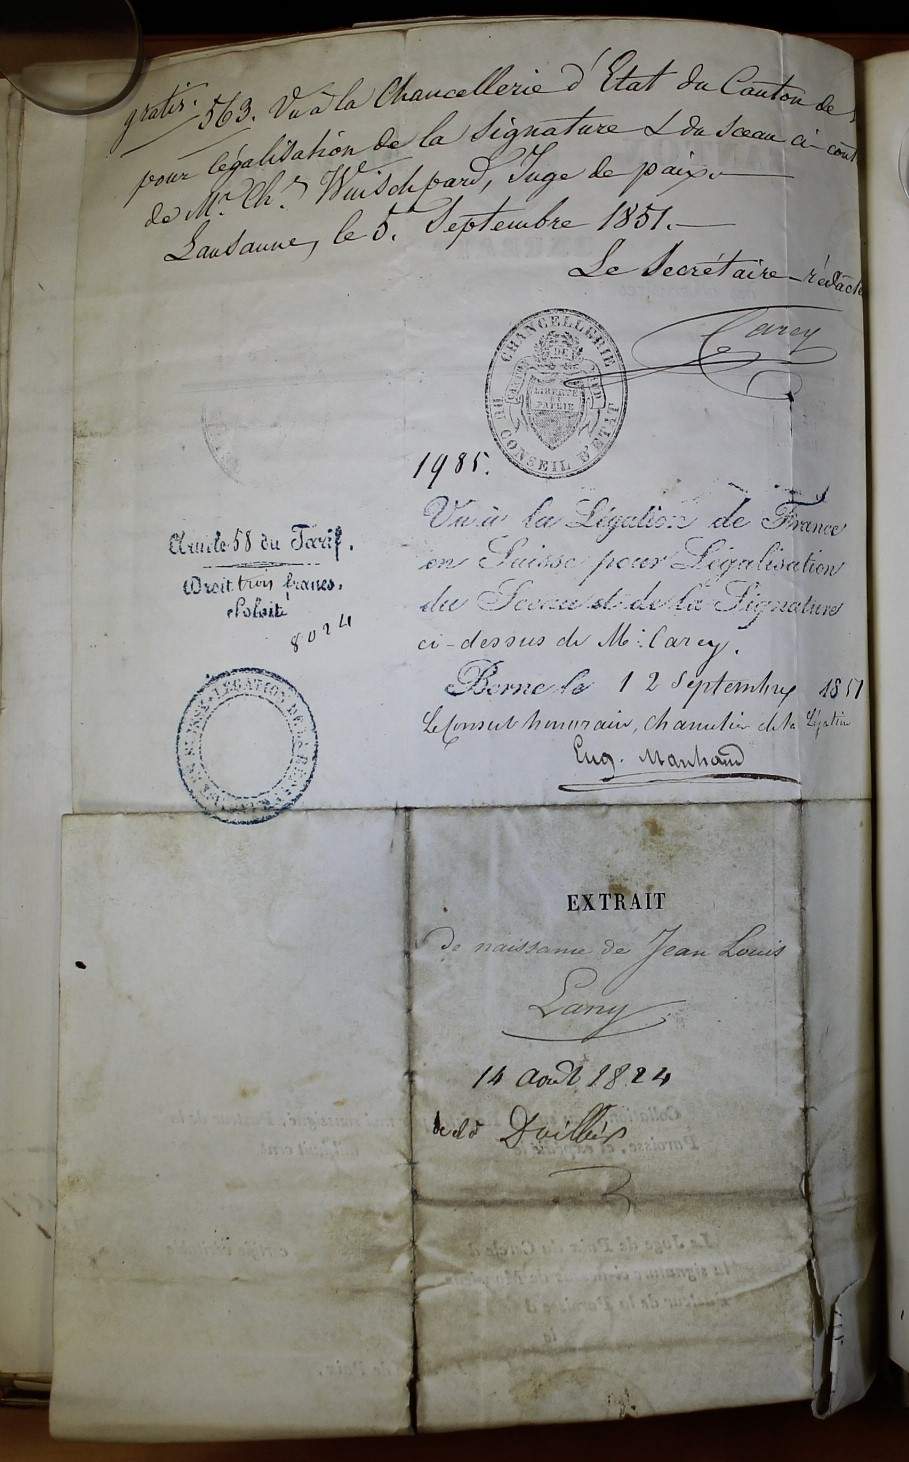 gratis. 563. Vu à la Chancellerie d'Etat du Canton de
pour légalisation de la signature & du sceau ci-cont
de Mr. Chs. Wuischpard, Juge de paix.
Lausanne, le 5. Septembre 1851.
Le Secrétaire-rédacte
Carey
CHANCELLERIE DU CONSEIL D'ETAT
LIBERTÉ ET PATRIE
1985.
Vu à la Légation de France
en Suisse pour Légalisation
du Sceau et de la Signature
ci-dessus de Mr. Carey.
Berne le 12 Septembre 1851
Le Consul honoraire, chancelier de la Légation
Eug. Marchand
Article 58 du Tarif.
Droit trois francs.
8024
LÉGATION DE LA
EN SUISSE
EXTRAIT
de naissance de Jean Louis
Lany
14 août 1824
Duillier